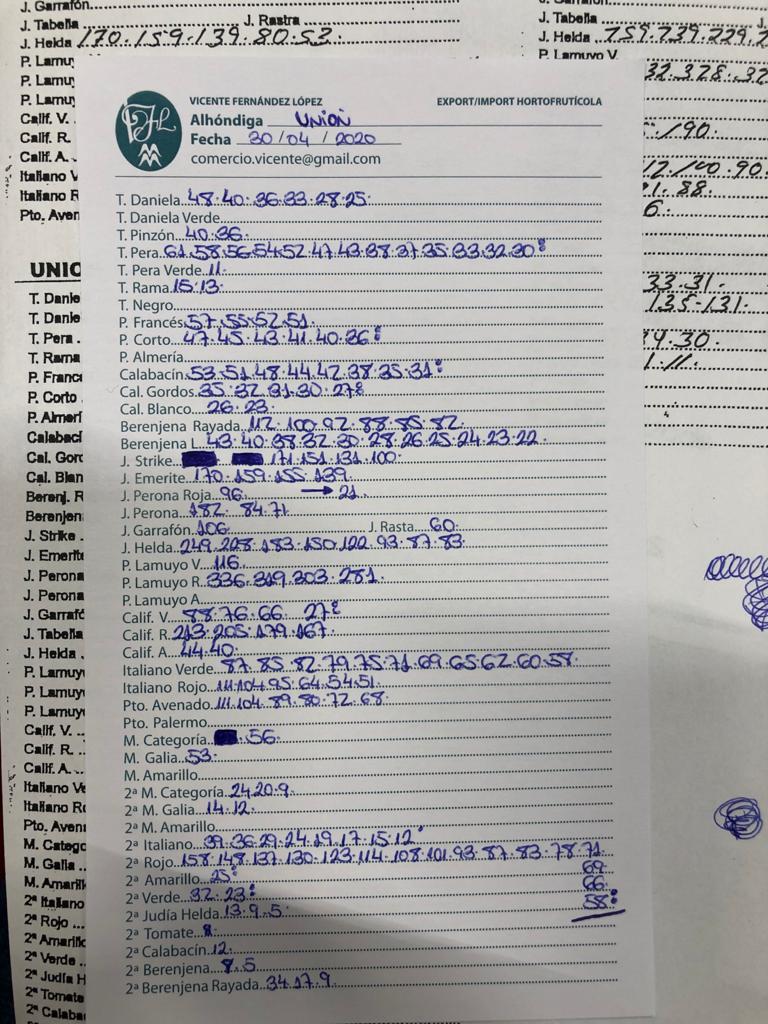 J. Garrafón.
J. Tabella J. Rastra
J. Helda 170.159.139.80.52.
P. Lamuy
P. Lamu
P. Lamu
Calif. V.
Calif. R.
Calif. A.
Italiano V
Italiano R
Pto. Aven
J. Tabella J.
J. Helda
P. Lamuyo V.
32.328.32
/90.
12./100.90.
88.
6.
33.31.
135-131.
9.30.
VICENTE FERNÁNDEZ LÓPEZ EXPORT/IMPORT HORTOFRUTÍCOLA
Alhóndiga UNION
Fecha 30/04/2020
comercio.vicente@gmail.com
T. Daniela 48.40.36.33.28.25.
T. Daniela Verde
T. Pinzón 40.36.
T. Pera 61.58.56.54.52.47.43.38.37.35.33.32.30:
T. Pera Verde 11.
T. Rama 15.13.
T. Negro
P. Francés 57.55.52.51.
P. Corto 47.45.43.41.40.36:
P. Almería
Calabacín 53.51.48.44.42.38.35.31:
Cal. Gordos 35.32.31.30.27:
Cal. Blanco 26.23.
Berenjena Rayada 112.100.92.88.85.82.
Berenjena L. 43.40.38.32.30.28.26.25.24.23.22.
J. Strike 171.151.131.100.
J. Emerite 170.159.155.139.
J. Perona Roja 96. → 21.
J. Perona 182. 84.71
J. Garrafón 106 J. Rasta 60.
J. Helda 249.228.183.150.122.93.87.83.
P. Lamuyo V. 116.
P. Lamuyo R. 336.319.303.281.
P. Lamuyo A.
Calif. V. 88.76.66. 27:
Calif. R. 213.205.179.167.
Calif. A. 44.40.
Italiano Verde 87.85.82.79.75.71.69.65.62.60.58.
Italiano Rojo 111.104.95.64.54.51.
Pto. Avenado 111.104.89.80.72.68.
Pto. Palermo
M. Categoría 56.
M. Galia 53.
M. Amarillo
2ª M. Categoría 24.20.9.
2ª M. Galia 14.12.
2ª M. Amarillo
2ª Italiano 39.36.29.24.19.17.15.12.
2ª Rojo 158.148.137.130.123.114.108.101.93.87.83.78.71.
69
2ª Amarillo 25:
66
2ª Verde 32.23:
58:
2ª Judía Helda 13.9.5.
2ª Tomate 8
2ª Calabacín 12.
2ª Berenjena 8.5
2ª Berenjena Rayada 34.17.9.
UNIO
T. Danie
T. Danie
T. Pera
T. Rama
P. Franc
P. Corto
P. Almer
Calabací
Cal. Gord
Cal. Blan
Berenj. R
Berenjen
J. Strike
J. Emerit
J. Perona
J. Perona
J. Garrafó
J. Tabella
J. Helda
P. Lamuy
P. Lamuy
P. Lamuy
Calif. V.
Calif. R.
Calif. A.
Italiano Ve
Italiano Ro
Pto. Aven
M. Catego
M. Galia
M. Amarill
2ª Italiano
2ª Rojo
2ª Amarillo
2ª Verde
2ª Judía H
2ª Tomate
2ª Calaba